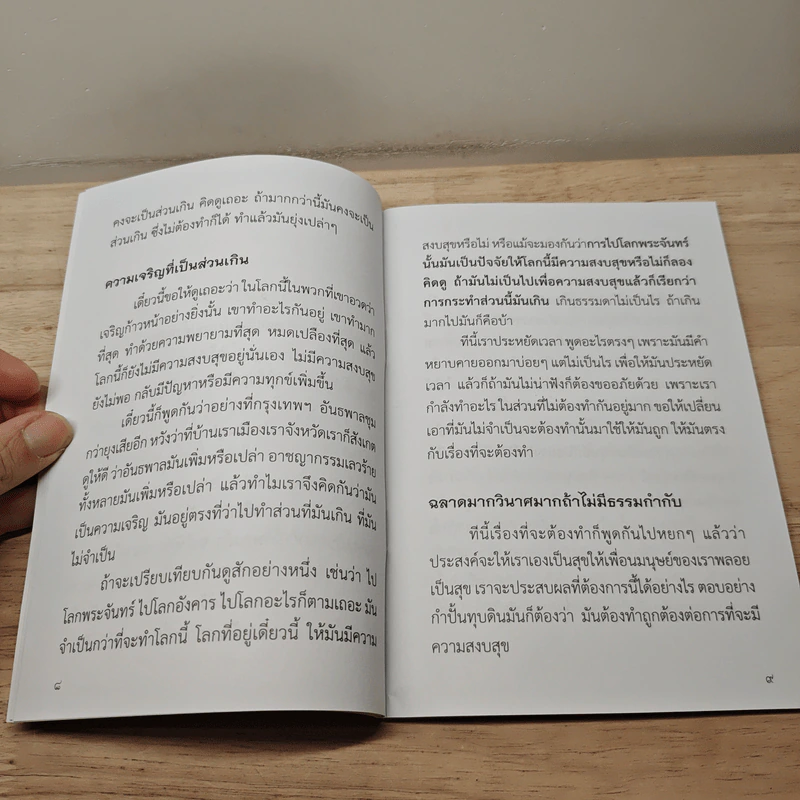 คงจะเป็นส่วนเกิน คิดดูเถอะ ถ้ามากกว่านี้มันคงจะเป็น
ส่วนเกิน ซึ่งไม่ต้องทำก็ได้ ทำแล้วมันยุ่งเปล่าๆ
ความเจริญที่เป็นส่วนเกิน
เดี๋ยวนี้ขอให้ดูเถอะว่า ในโลกนี้ในพวกที่เขาอวดว่า
เจริญก้าวหน้าอย่างยิ่งนั้น เขาทำอะไรกันอยู่ เขาทำมาก
ที่สุด ทำด้วยความพยายามที่สุด หมดเปลืองที่สุด แล้ว
โลกนี้ก็ยังไม่มีความสงบสุขอยู่นั่นเอง ไม่มีความสงบสุข
ยังไม่พอ กลับมีปัญหาหรือมีความทุกข์เพิ่มขึ้น
เดี๋ยวนี้ก็พูดกันว่าอย่างที่กรุงเทพฯ อันธพาลชุม
กว่ายุงเสียอีก หวังว่าที่บ้านเราเมืองเราจังหวัดเราก็สังเกต
ดูให้ดี ว่าอันธพาลมันเพิ่มหรือเปล่า อาชญากรรมเลวร้าย
ทั้งหลายมันเพิ่มหรือเปล่า แล้วทำไมเราจึงคิดกันว่ามัน
เป็นความเจริญ มันอยู่ตรงที่ว่าไปทำส่วนที่มันเกิน ที่มัน
ไม่จำเป็น
ถ้าจะเปรียบเทียบกันดูสักอย่างหนึ่ง เช่นว่า ไป
โลกพระจันทร์ ไปโลกอังคาร ไปโลกอะไรก็ตามเถอะ มัน
จำเป็นกว่าที่จะทำโลกนี้ โลกที่อยู่เดี๋ยวนี้ ให้มันมีความ
๘
สงบสุขหรือไม่ หรือแม้จะมองกันว่าการไปโลกพระจันทร์
นั้นมันเป็นปัจจัยให้โลกนี้มีความสงบสุขหรือไม่ก็ลอง
คิดดู ถ้ามันไม่เป็นไปเพื่อความสงบสุขแล้วก็เรียกว่า
การกระทำส่วนนี้มันเกิน เกินธรรมดาไม่เป็นไร ถ้าเกิน
มากไปมันก็คือบ้า
ทีนี้เราประหยัดเวลา พูดอะไรตรงๆ เพราะมันมีคำ
หยาบคายออกมาบ่อยๆ แต่ไม่เป็นไร เพื่อให้มันประหยัด
เวลา แล้วก็ถ้ามันไม่น่าฟังก็ต้องขออภัยด้วย เพราะเรา
กำลังทำอะไร ในส่วนที่ไม่ต้องทำกันอยู่มาก ขอให้เปลี่ยน
เอาที่มันไม่จำเป็นจะต้องทำนั้นมาใช้ให้มันถูก ให้มันตรง
กับเรื่องที่จะต้องทำ
ฉลาดมากวินาศมากถ้าไม่มีธรรมกำกับ
ทีนี้เรื่องที่จะต้องทำก็พูดกันไปหยกๆ แล้วว่า
ประสงค์จะให้เราเองเป็นสุขให้เพื่อนมนุษย์ของเราพลอย
เป็นสุข เราจะประสบผลที่ต้องการนี้ได้อย่างไร ตอบอย่าง
กำปั้นทุบดินมันก็ต้องว่า มันต้องทำถูกต้องต่อการที่จะมี
ความสงบสุข
๙